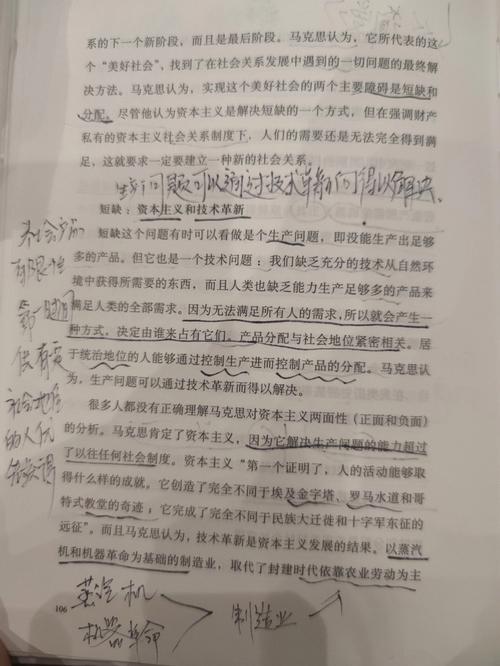 系的下一个新阶段，而且是最后阶段。马克思认为，它所代表的这
个“美好社会”，找到了在社会关系发展中遇到的一切问题的最终解
决方法。马克思认为，实现这个美好社会的两个主要障碍是短缺和
分配。尽管他认为资本主义是解决短缺的一个方式，但在强调财产
私有的资本主义社会关系制度下，人们的需要还是无法完全得到满
足，这就要求一定要建立一种新的社会关系。
生产问题可以通过技术革新而得以解决。
短缺：资本主义和技术革新
短缺这个问题有时可以看做是个生产问题，即没能生产出足够
多的产品。但它也是一个技术问题：我们缺乏充分的技术从自然环
境中获得所需要的东西，而且人类也缺乏能力生产足够多的产品来
满足人类的全部需求。因为无法满足所有人的需求，所以就会产生一
种方式，决定由谁来占有它们。产品分配与社会地位紧密相关。居
于统治地位的人能够通过控制生产进而控制产品的分配。马克思认
为，生产问题可以通过技术革新而得以解决。
很多人都没有正确理解马克思对资本主义两面性（正面和负面）
的分析。马克思肯定了资本主义，因为它解决生产问题的能力超过
了以往任何社会制度。资本主义“第一个证明了，人的活动能够取
得什么样的成就。它创造了完全不同于埃及金字塔、罗马水道和哥
特式教堂的奇迹；它完成了完全不同于民族大迁徙和十字军东征的
远征”。而且马克思认为，技术革新是资本主义发展的结果。以蒸汽
机和机器革命为基础的制造业，取代了封建时代依靠农业劳动为主
有限性
第一时间
社会地位
的人优
106
蒸汽机
机器革命
制造业